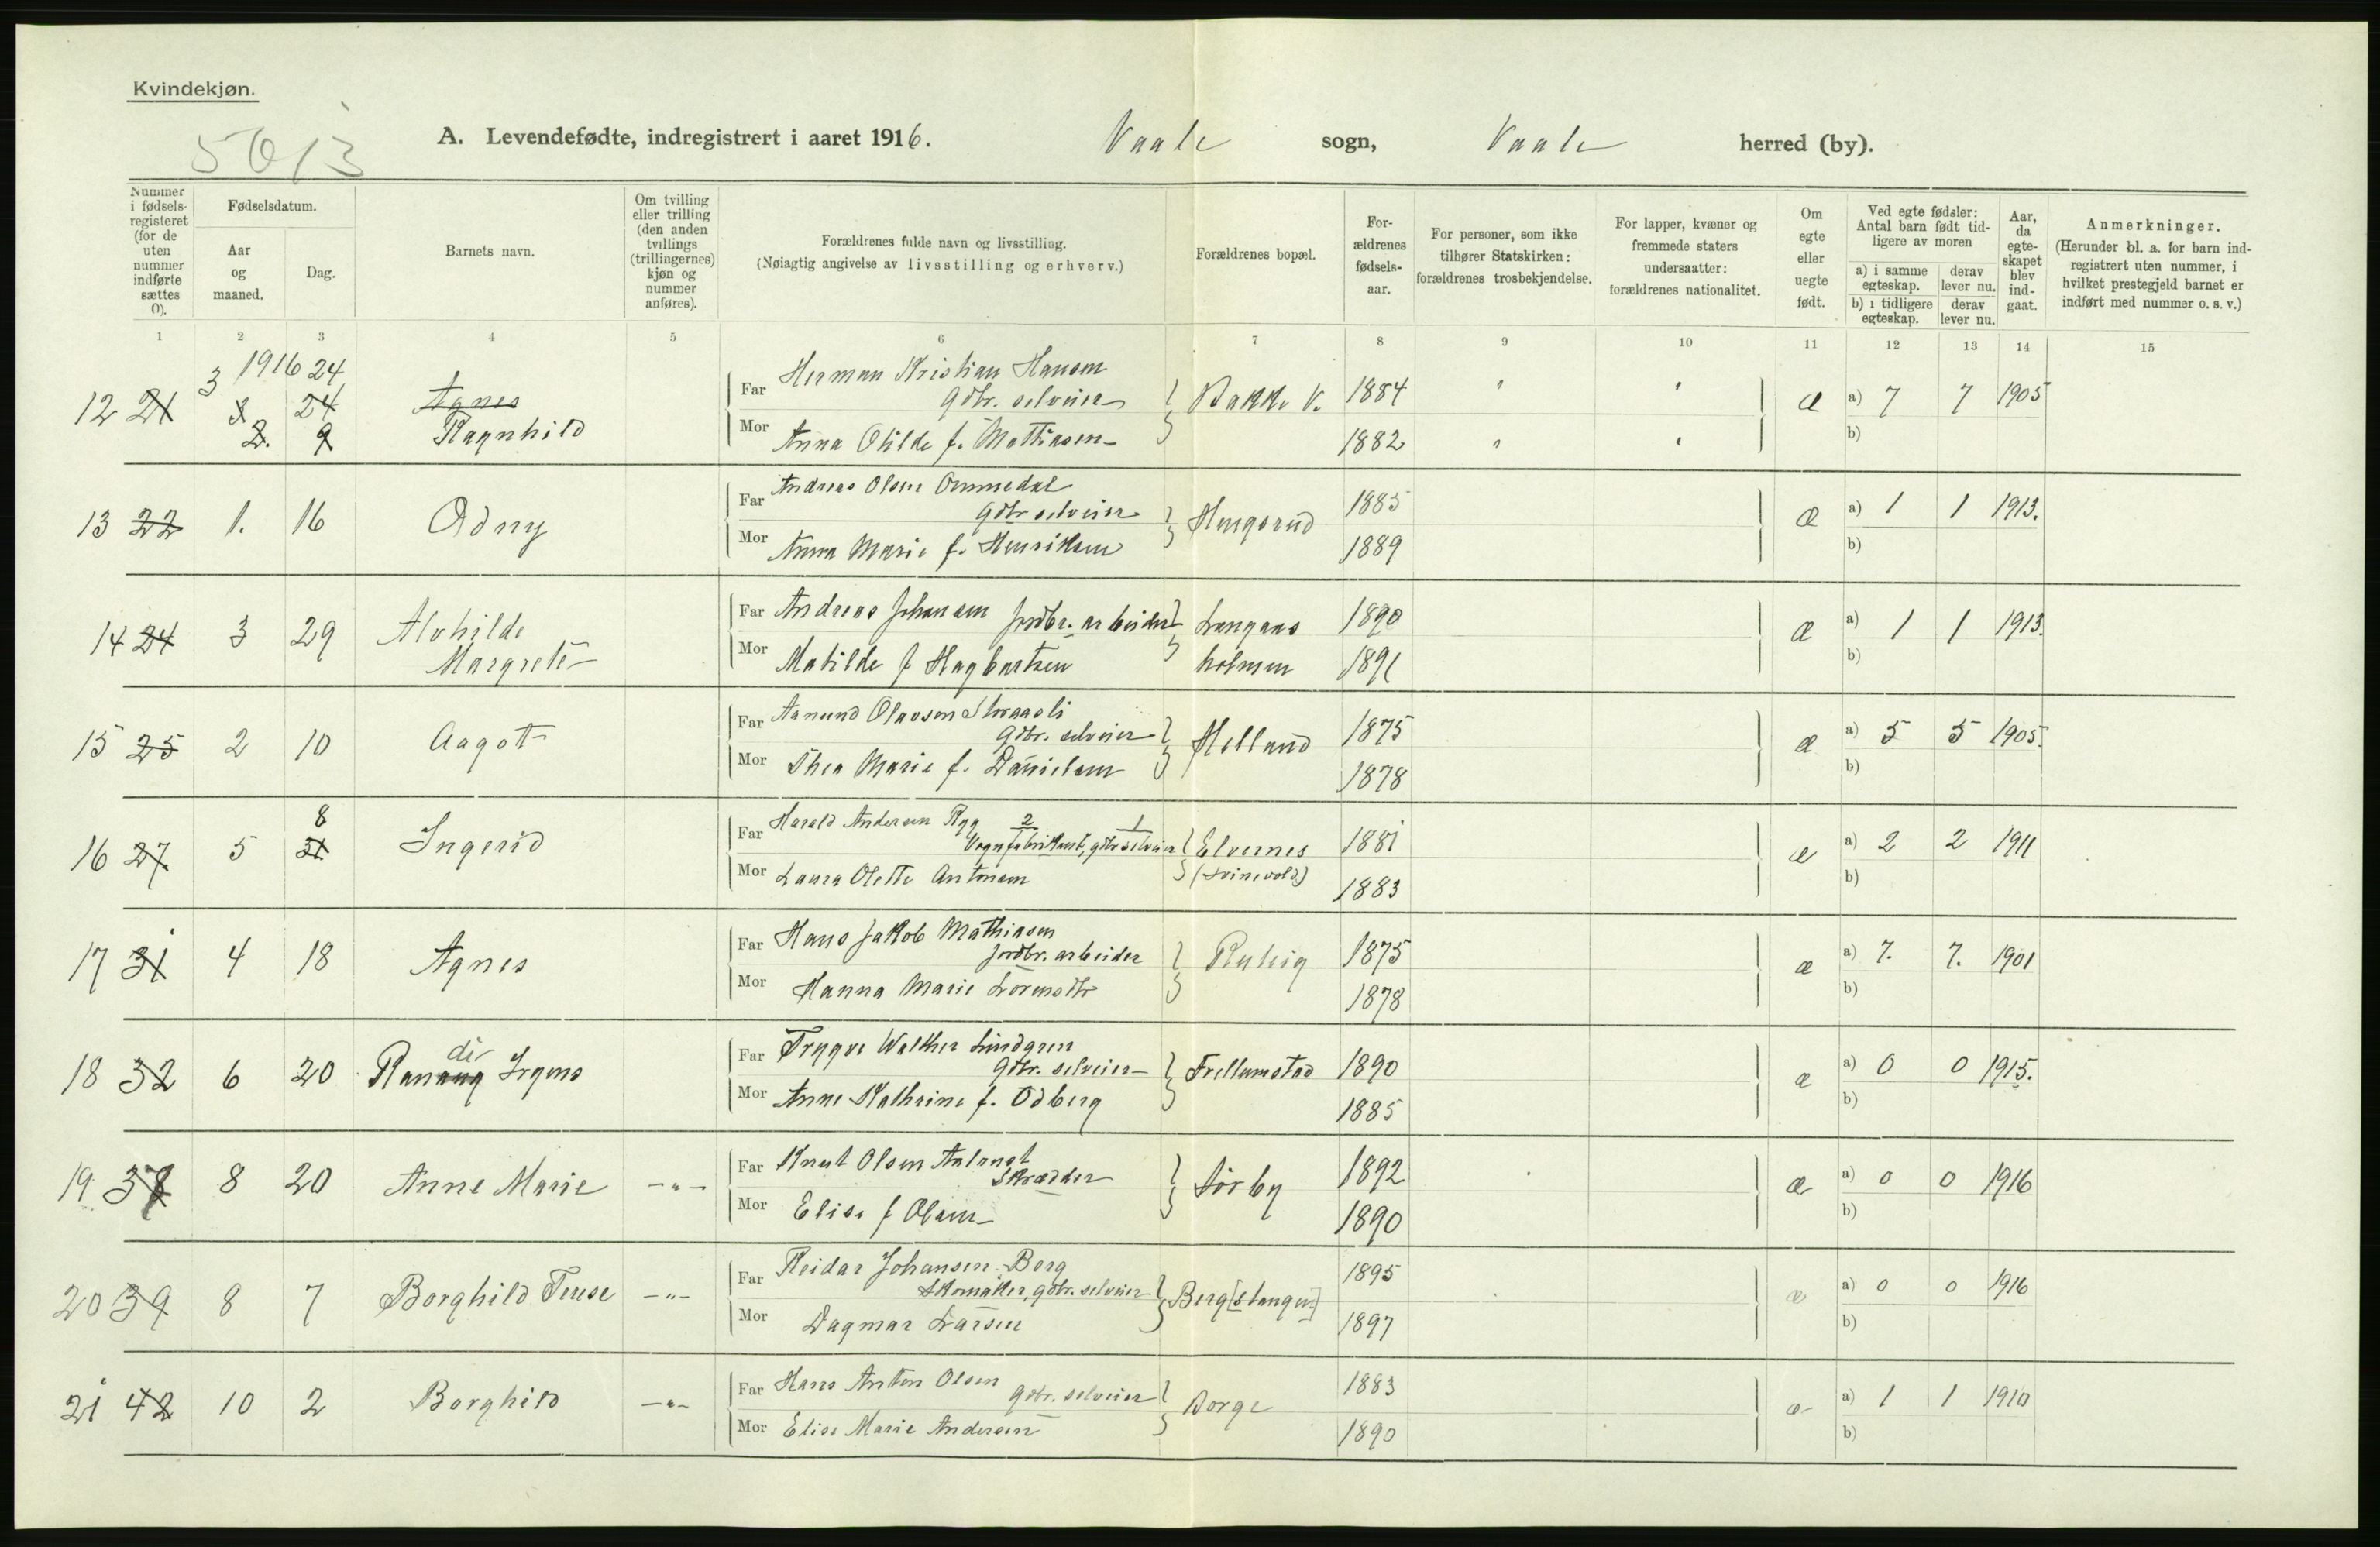 Kvindekjøn.
5013
A. Levendefødte, indregistrert i aaret 1916. Vaale sogn, Vaale herred (by).
Nummer i fødselsregisteret (for de uten nummer indførte sættes 0).
Fødselsdatum.
Aar og maaned.
Dag.
Barnets navn.
Om tvilling eller trilling (den anden tvillings (trillingernes) kjøn og nummer anføres).
Forældrenes fulde navn og livsstilling.
(Nøiagtig angivelse av livsstilling og erhverv.)
Forældrenes bopæl.
Forældrenes fødselsaar.
For personer, som ikke tilhører Statskirken: forældrenes trosbekjendelse.
For lapper, kvæner og fremmede staters undersaatter: forældrenes nationalitet.
Om egte eller uegte født.
Ved egte fødsler: Antal barn født tidligere av moren
a) i samme egteskap. derav lever nu.
b) i tidligere egteskap. derav lever nu.
Aar, da egteskapet blev indgaat.
Anmerkninger.
(Herunder bl. a. for barn indregistrert uten nummer, i hvilket prestegjeld barnet er indført med nummer o. s. v.)
1 2 3 4 5 6 7 8 9 10 11 12 13 14 15
1916
12 21 3 24 Agnes Far Herman Kristian Hansen
3 24 Gdbr. selveier Bakke V. 1884 " " æ a) 7 7 1905
2. 9 Ragnhild Mor Anna Otilde f. Mathiasen 1882 " " b)
13 22 1. 16 Odny Far Andreas Olsen Ommedal
Gdbr selveier Hengsrud 1885 æ a) 1 1 1913.
Mor Anna Marie f. Henriksen 1889 b)
14 24 3 29 Alvhilde Far Andreas Johansen jordbr. arbeider Langaas 1890 æ a) 1 1 1913.
Margrete Mor Matilde f Hagbartsen holmen 1891 b)
15 25 2 10 Aagot Far Aanund Olavsen
Gdbr. selveier Helland 1875 æ a) 5 5 1905.
Mor Thea Marie f. Danielsen 1878 b)
8
16 27 5 31 Ingerid Far Harald Andersen Rygg 2 1
Vognfabrikant, gdbr selveier Elvernes 1881 æ a) 2 2 1911
Mor Laura Olette Antonsen (Svinevold) 1883 b)
17 31 4 18 Agnes Far Hans Jakob Mathiasen
jordbr. arbeider 1875 æ a) 7. 7. 1901
Mor Hanna Marie Lorensdtr 1878 b)
di
18 32 6 20 Ranaug Irgens Far Trygve Walther Lindgren
Gdbr. selveier Frellumstad 1890 æ a) 0 0 1915.
Mor Anne Kathrine f. Odberg 1885 b)
19 38 8 20 Anne Marie -"- Far Knut Olsen
Skrædder Sørby 1892 æ a) 0 0 1916
Mor Elise f Olsen 1890 b)
20 39 8 7 Borghild Terese -"- Far Reidar Johansen Berg
Skomaker, gdbr. selveier Berg [stangen] 1895 æ a) 0 0 1916
Mor Dagmar Larsen 1897 b)
21 42 10 2 Borghild -"- Far Hans Anton Olsen Gdbr. selveier Borge 1883 æ a) 1 1 1910
Mor Elise Marie Andersen 1890 b)